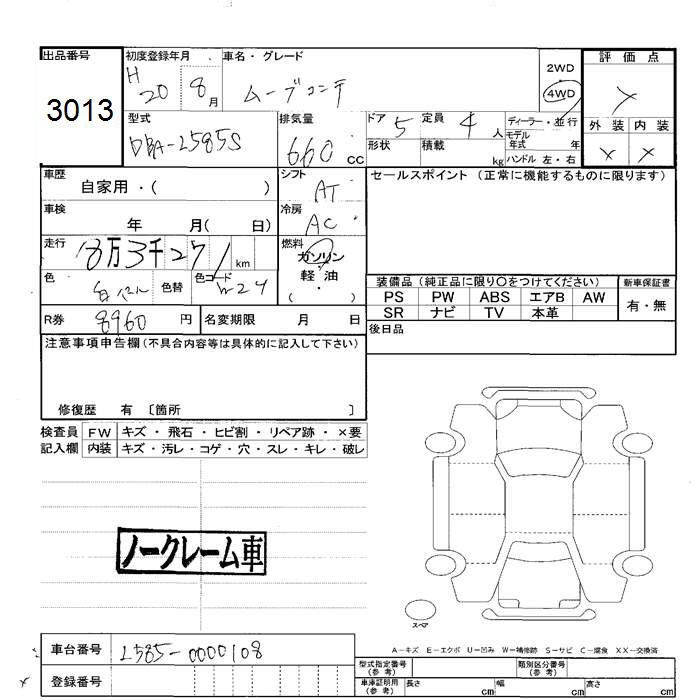 出品番号 初度登録年月 車名・グレード 評価点
3013 H20 8月 ムーブコンテ 2WD 4WD
型式 排気量 ドア 5 定員 4人 ディーラー・並行 外装 内装
DBA-L585S 660cc 形状 積載 kg モデル年式 年 ハンドル 左・右 × ×
車歴 シフト セールスポイント (正常に機能するものに限ります)
自家用・( ) AT
車検 冷房
年 月( 日) AC
走行 8万3千271km 燃料 ガソリン
色 色替 色コード W24 軽油
( ・ )
装備品 (純正品に限り○をつけてください) 新車保証書
PS PW ABS エアB AW 有・無
SR ナビ TV 本革
R券 8960円 名変期限 月 日 後日品
注意事項申告欄(不具合内容等は具体的に記入して下さい)
修復歴 有 〔箇所 〕
検査員 FW キズ・飛石・ヒビ割・リペア跡・×要
記入欄 内装 キズ・汚レ・コゲ・穴・スレ・キレ・破レ
ノークレーム車
スペア
A－キズ E－エクボ U－凹み W－補修跡 S－サビ C－腐食 XX－交換済
車台番号 L585-0000108
型式指定番号(参考) 類別区分番号(参考)
登録番号 車庫証明用(参考) 長さ cm 幅 cm 高さ cm